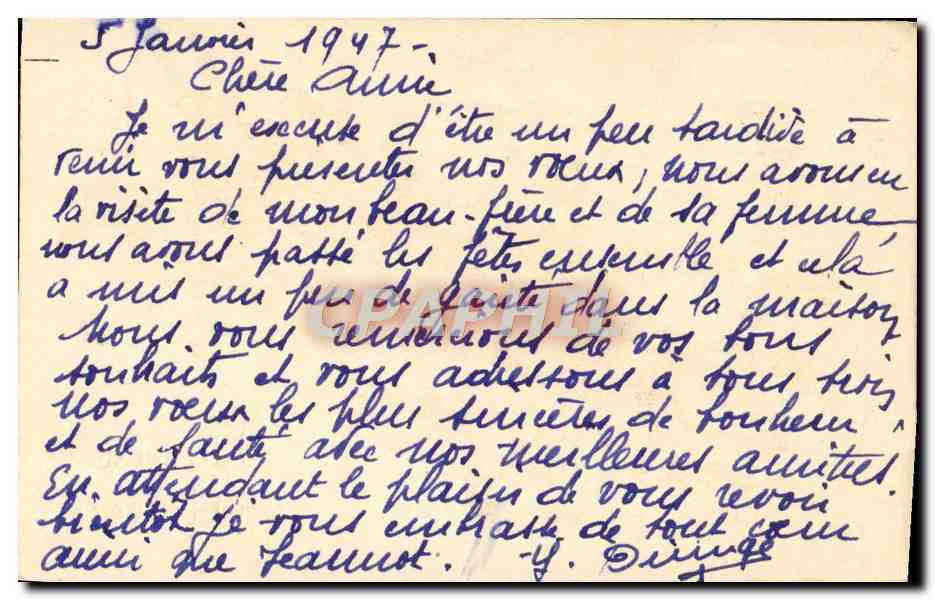 5 Janvier 1947 -
Chère Amie
Je m'excuse d'être un peu tardive à
venir vous presenter nos voeux, nous avons eu
la visite de mon beau-frère et de sa femme,
nous avons passé les fêtes ensemble et cela
a mis un peu de gaieté dans la maison,
Nous vous remercions de vos bons
souhaits et vous adressons à tous trois
nos voeux les plus sincères de bonheur,
et de santé, avec nos meilleures amitiés.
En attendant le plaisir de vous revoir
bientôt je vous embrasse de tout coeur
ainsi que Jeannot. - Y.
CPAPHIL